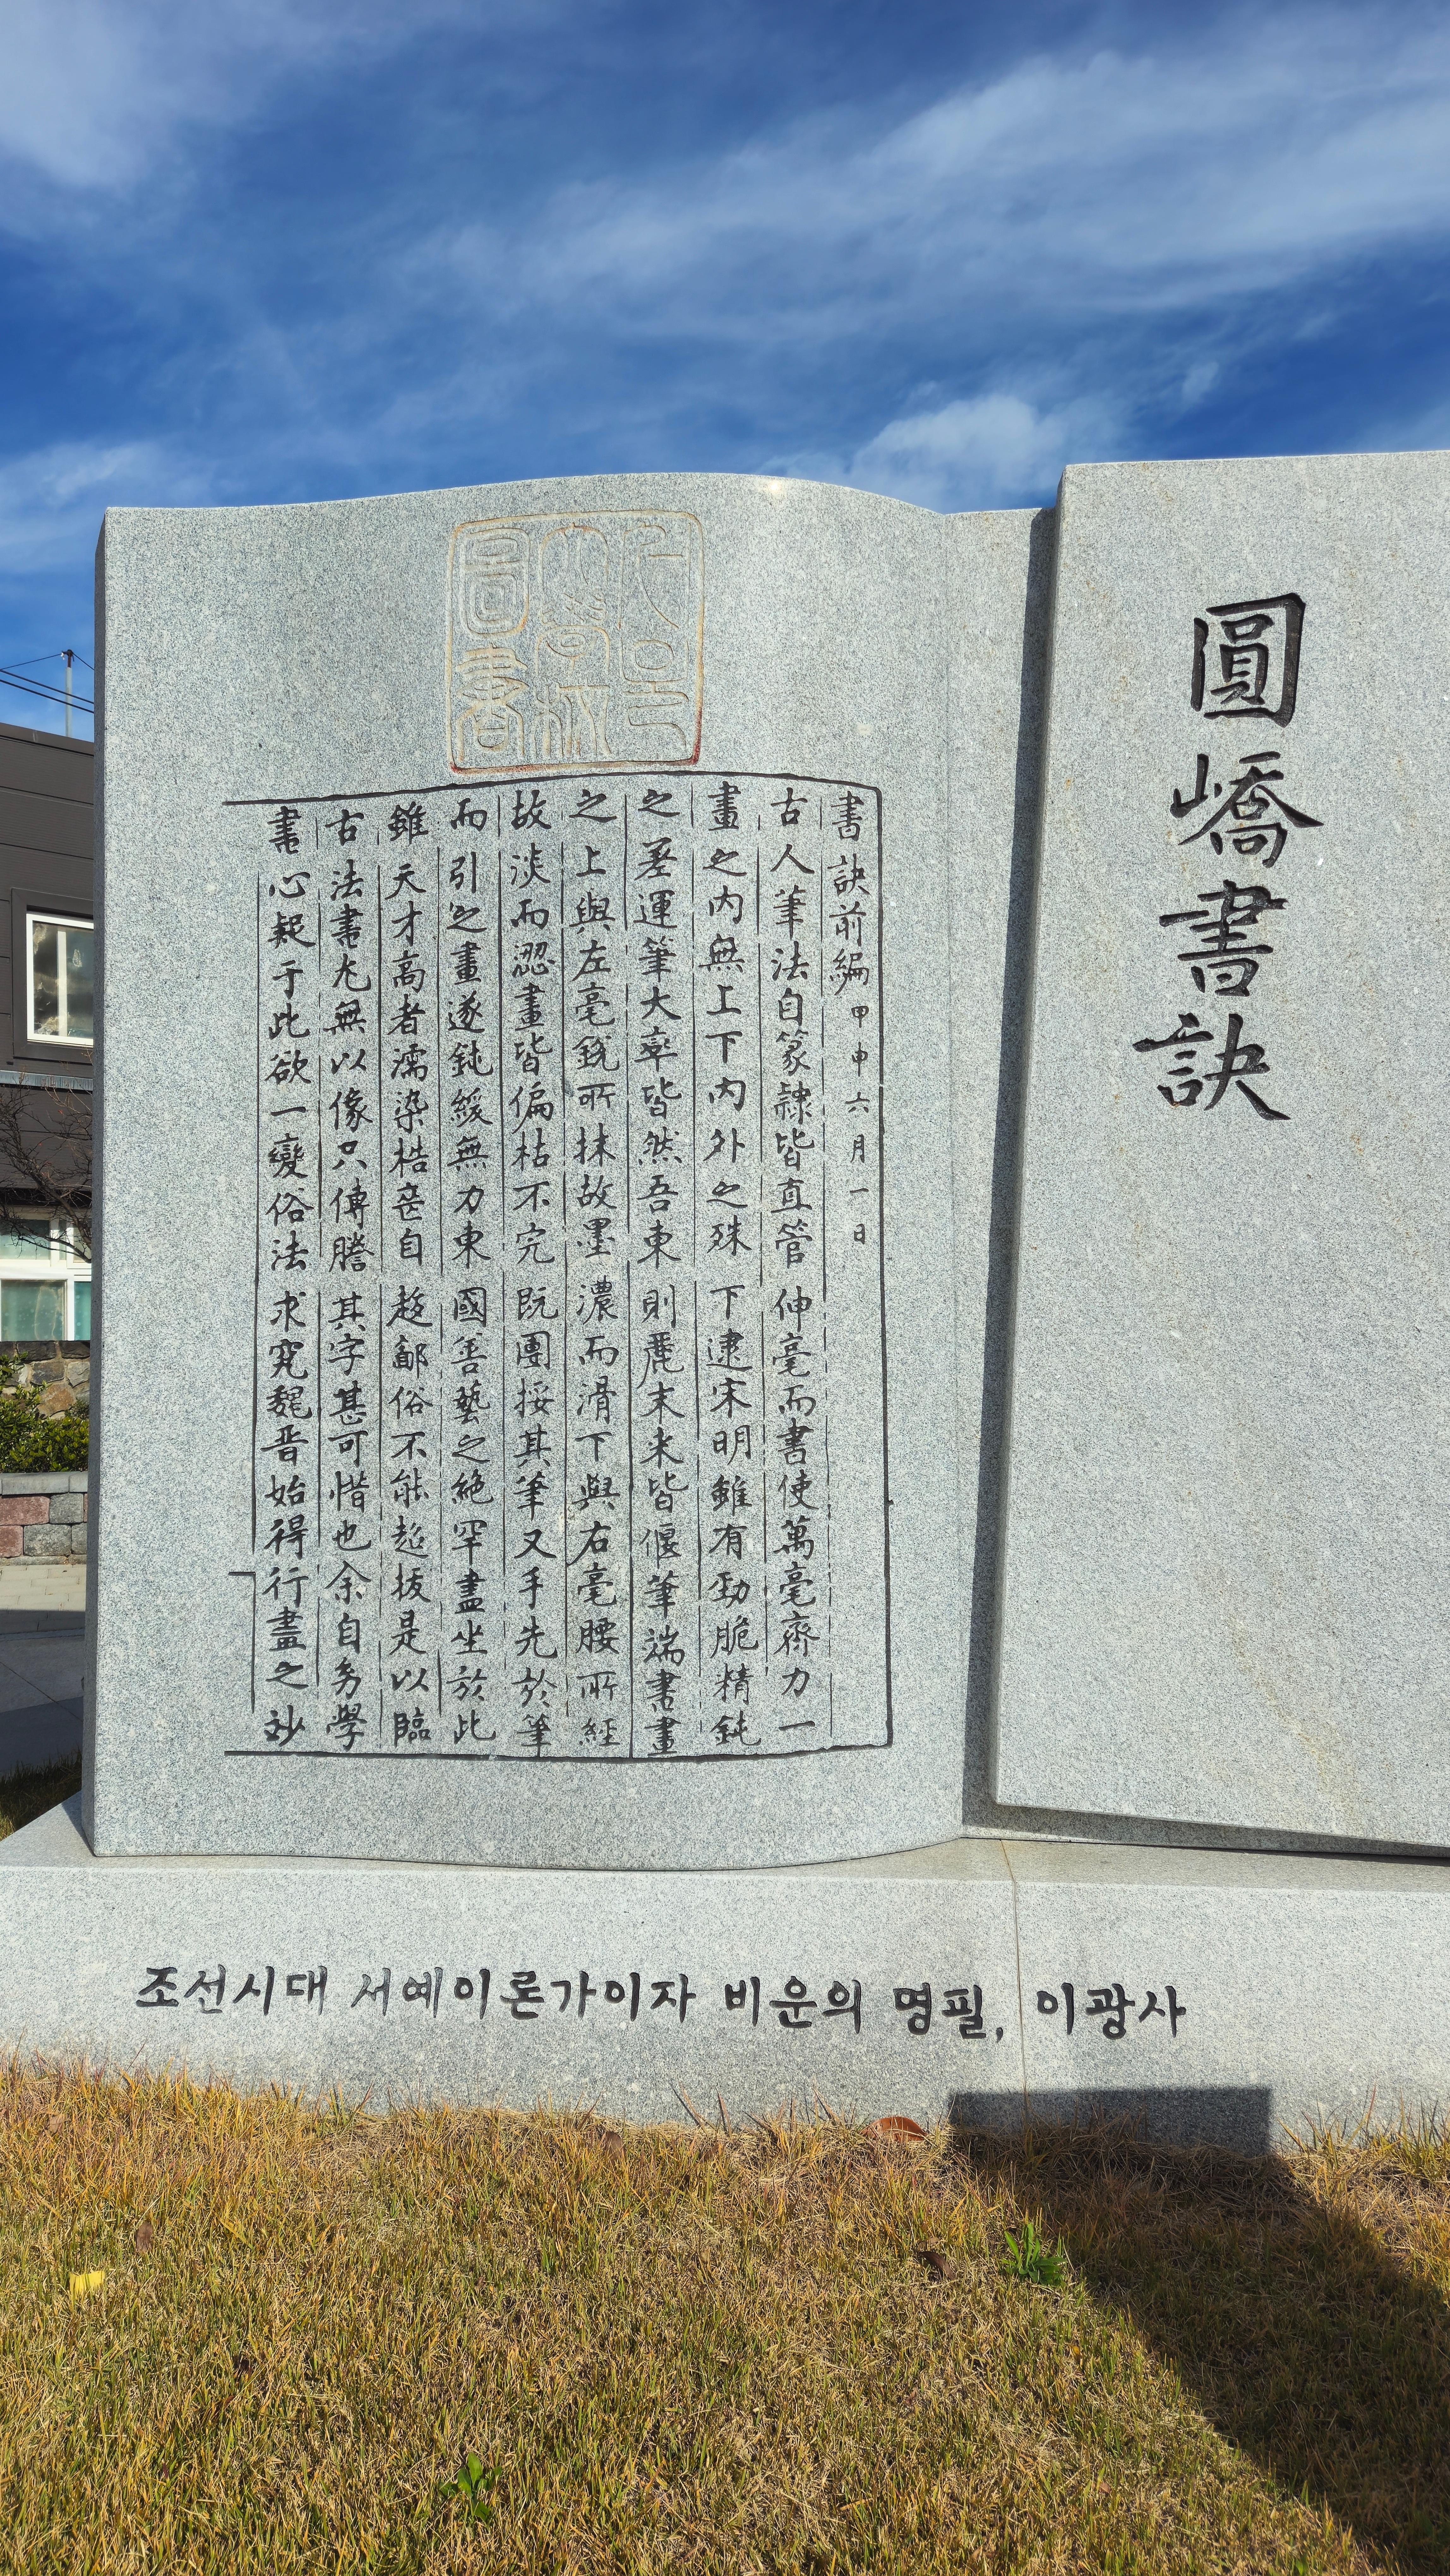 圓嶠書訣
圖書
書訣前編 甲申六月一日
古人筆法自篆隷皆直管伸毫而書使萬毫齊力一
畫之內無上下內外之殊下逮宋明雖有勁脆精鈍
之差運筆大率皆然吾東則麗末来皆偃筆端書畫
之上與左毫銳所抹故墨濃而滑下與右毫腰所經
故淡而澀畫皆偏枯不完既團挼其筆又手先於筆
而引之畫遂鈍緩無力東國善藝之絶罕盡坐於此
雖天才高者濡染梏喪自趍鄙俗不能超拔是以臨
古法書尤無以像只傳謄其字甚可惜也余自務學
書心疑于此欲一變俗法求究魏晋始得行畫之妙
조선시대 서예이론가이자 비운의 명필, 이광사